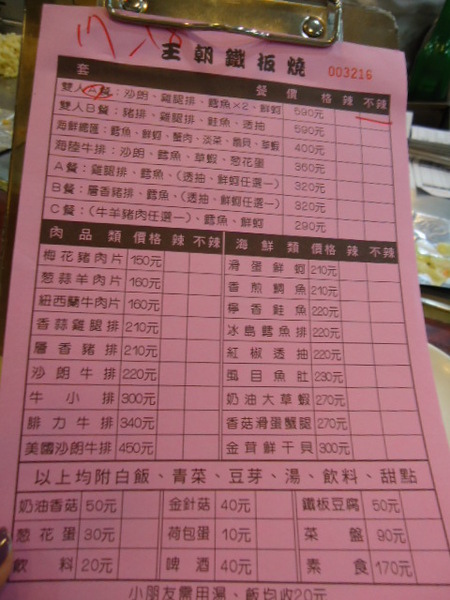 王朝鐵板燒 003216
套餐 價格 辣 不辣
雙人A餐：沙朗、雞腿排、鱈魚×2、鮮蚵 590元
雙人B餐：豬排、雞腿排、鮭魚、透抽 590元
海鮮總匯：鱈魚、鮮蚵、蟹肉、淡菜、扇貝、草蝦 400元
海陸牛排：沙朗、鱈魚、草蝦、葱花蛋 360元
A餐：雞腿排、鱈魚、(透抽、鮮蚵任選一) 320元
B餐：層香豬排、鱈魚、(透抽、鮮蚵任選一) 320元
C餐：(牛羊豬肉任選一)、鱈魚、鮮蚵 290元
肉品類 價格 辣 不辣 海鮮類 價格 辣 不辣
梅花豬肉片 150元 滑蛋鮮蚵 210元
葱蒜羊肉片 160元 香煎鯛魚 210元
紐西蘭牛肉片 160元 檸香鮭魚 220元
香蒜雞腿排 210元 冰島鱈魚排 220元
層香豬排 210元 紅椒透抽 220元
沙朗牛排 220元 虱目魚肚 230元
牛小排 300元 奶油大草蝦 270元
腓力牛排 340元 香菇滑蛋蟹腿 270元
美國沙朗牛排 450元 金茸鮮干貝 300元
以上均附白飯、青菜、豆芽、湯、飲料、甜點
奶油香菇 50元 金針菇 40元 鐵板豆腐 50元
葱花蛋 30元 荷包蛋 10元 菜盤 90元
飲料 20元 啤酒 40元 素食 170元
小朋友需用湯、飯均收20元